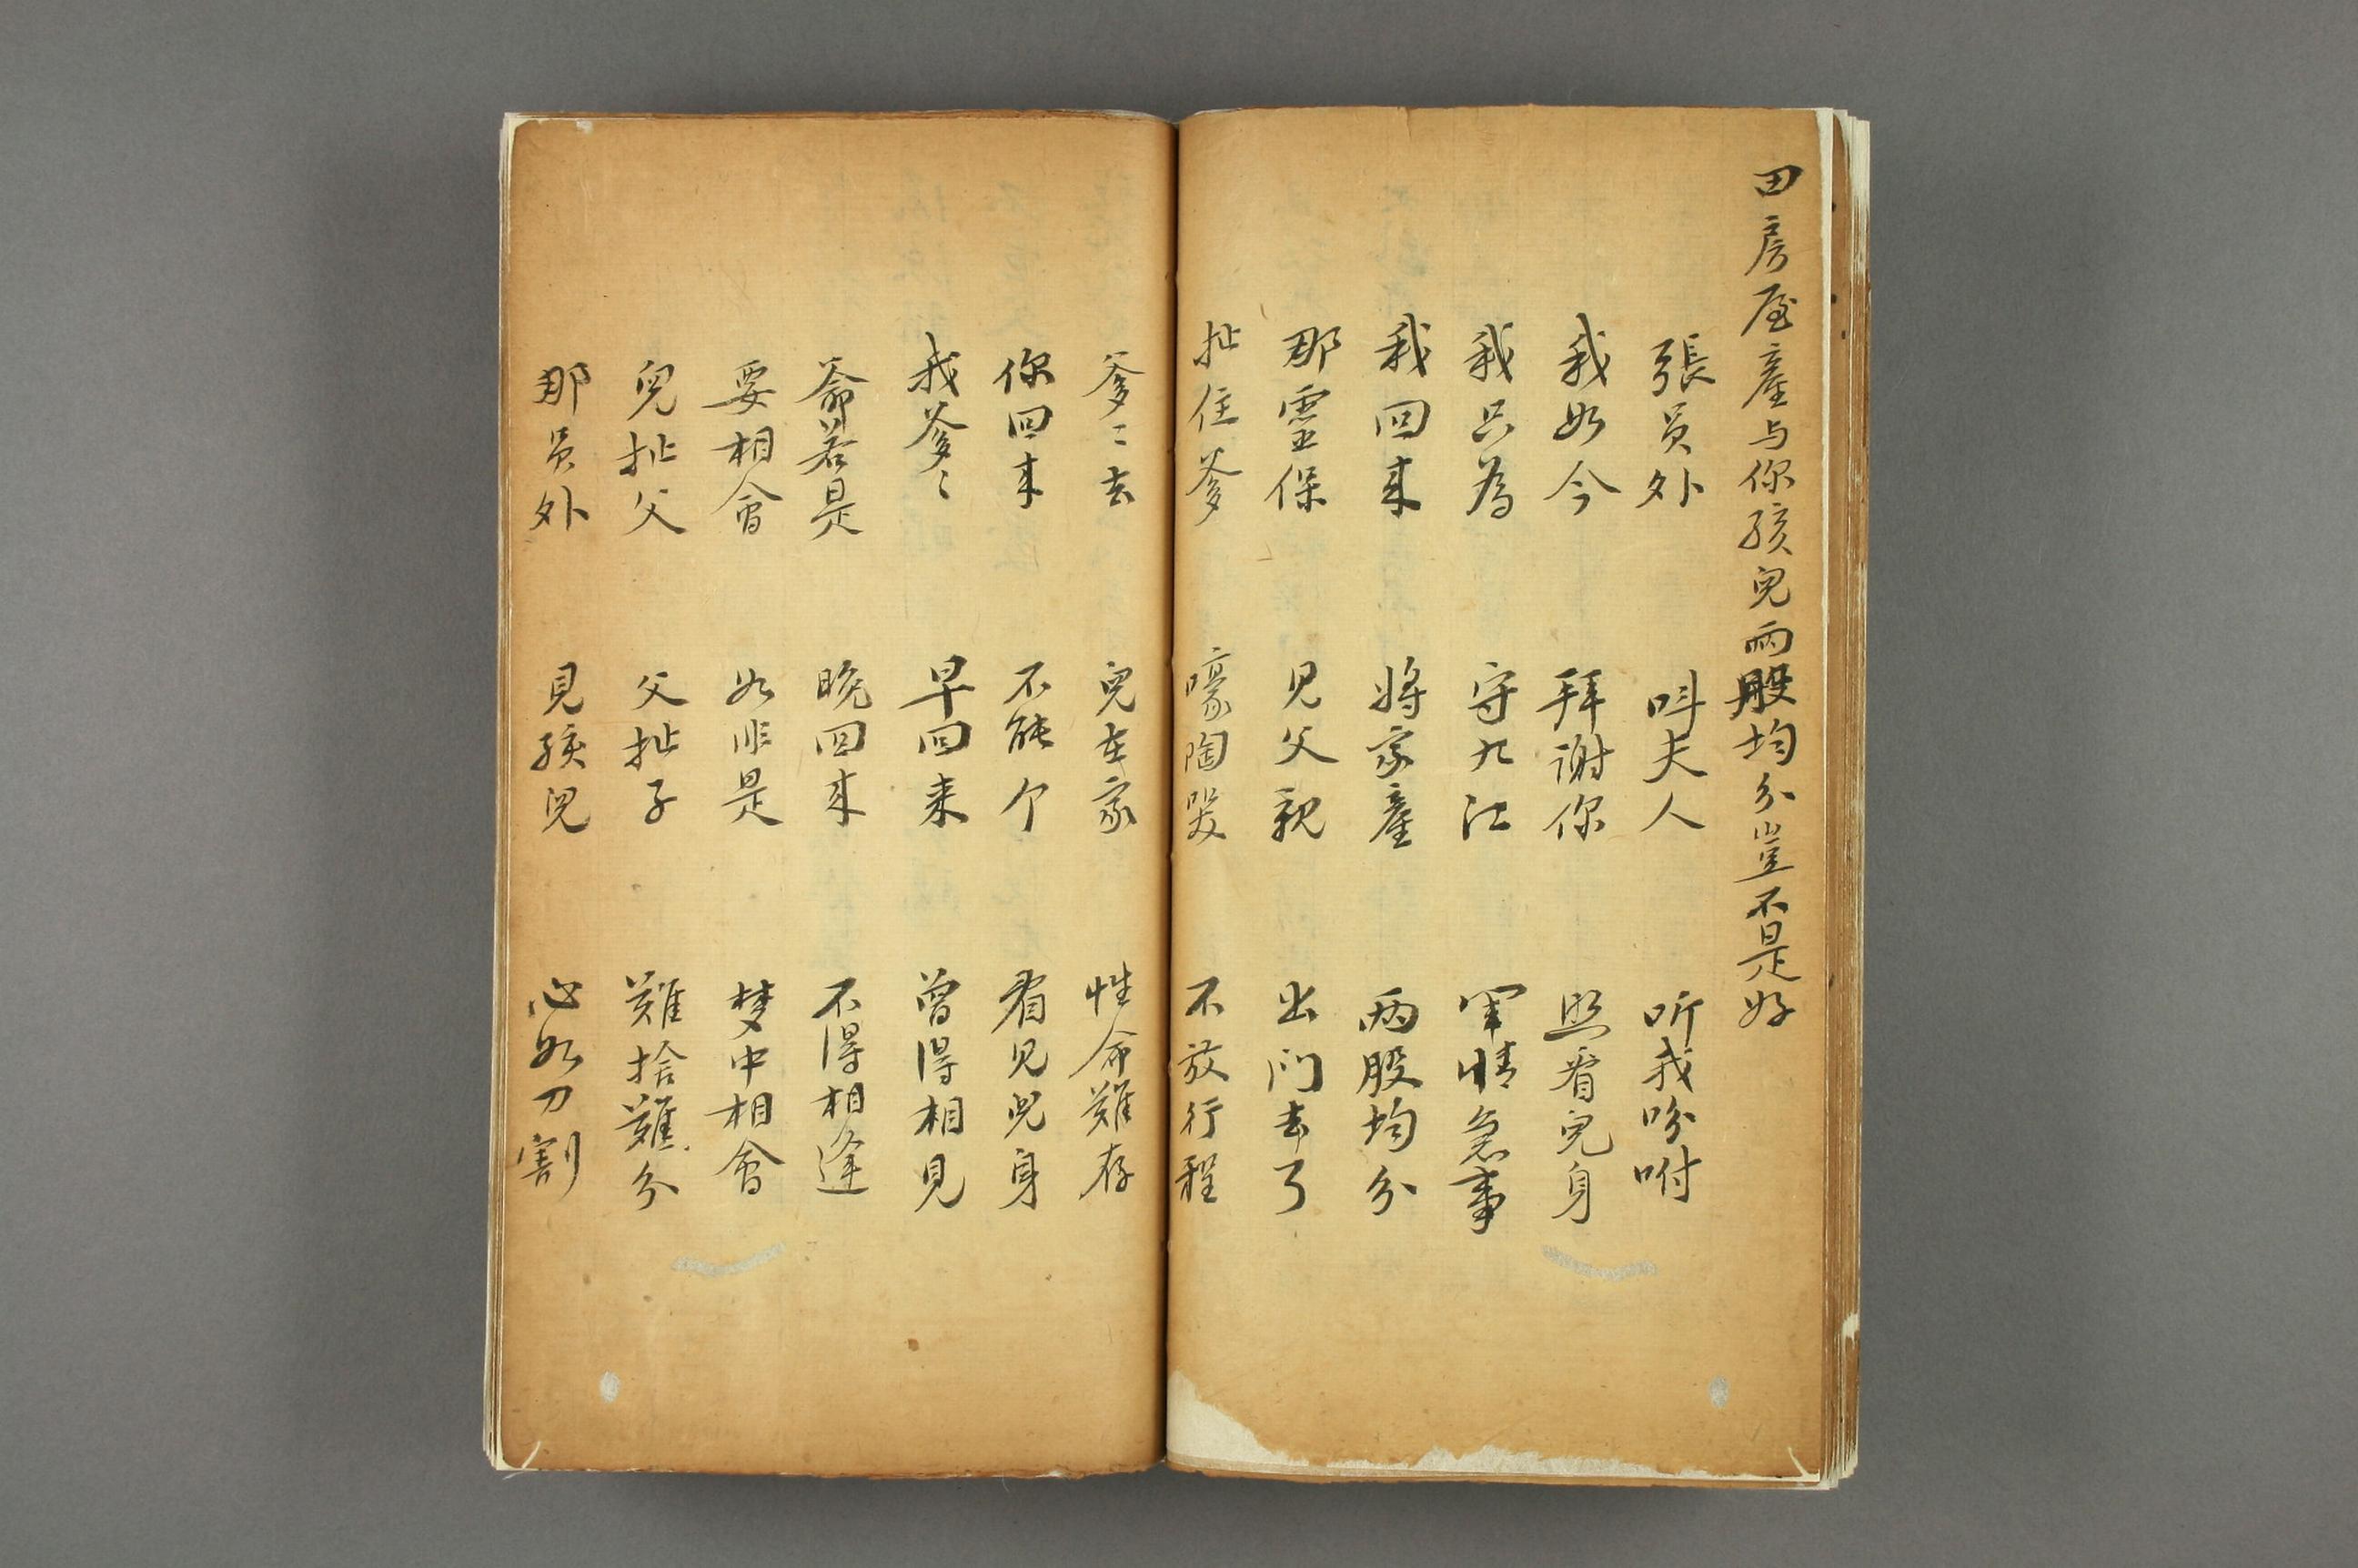 田房屋產与你孩兒兩股均分豈不是好
張員外 呌夫人 听我吩咐
我如今 拜谢你 照看兒身
我只為 守九江 軍情急事
我回來 將家產 两股均分
那靈保 见父親 出门去了
扯住爹 嚎陶哭 不放行程
爹〻去 兒在家 性命难存
你回來 不能个 看见兒身
我爹〻 早回来 曾得相见
爺若是 晚回來 不得相逢
要相會 如非是 梦中相會
兒扯父 父扯子 难捨难分
那员外 見孩兒 心如刀割